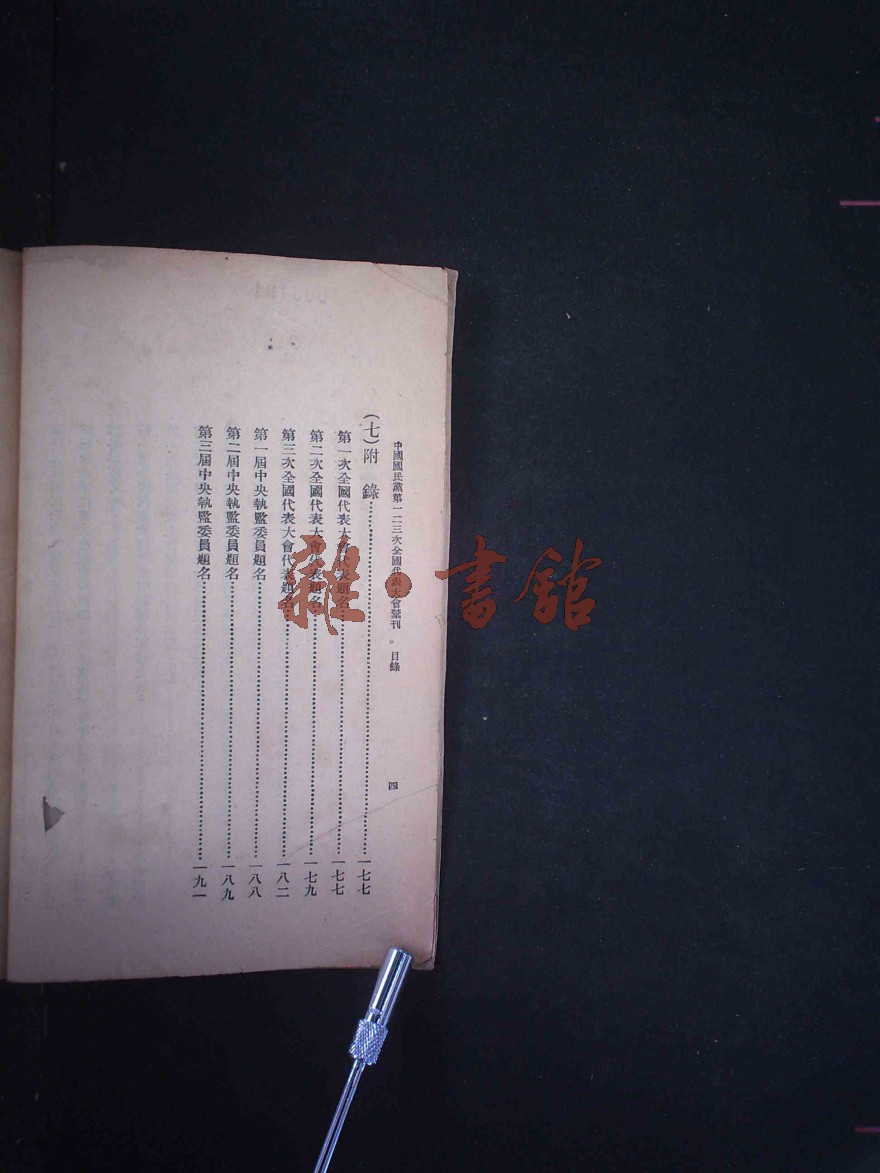 中國國民黨第一二三次全國代表大會彙刊 目錄 四
(七)附錄……一七七
第一次全國代表大會代表題名……一七七
第二次全國代表大會代表題名……一七九
第三次全國代表大會代表題名……一八二
第一屆中央執監委員題名……一八八
第二屆中央執監委員題名……一八九
第三屆中央執監委員題名……一九一
雜·書館